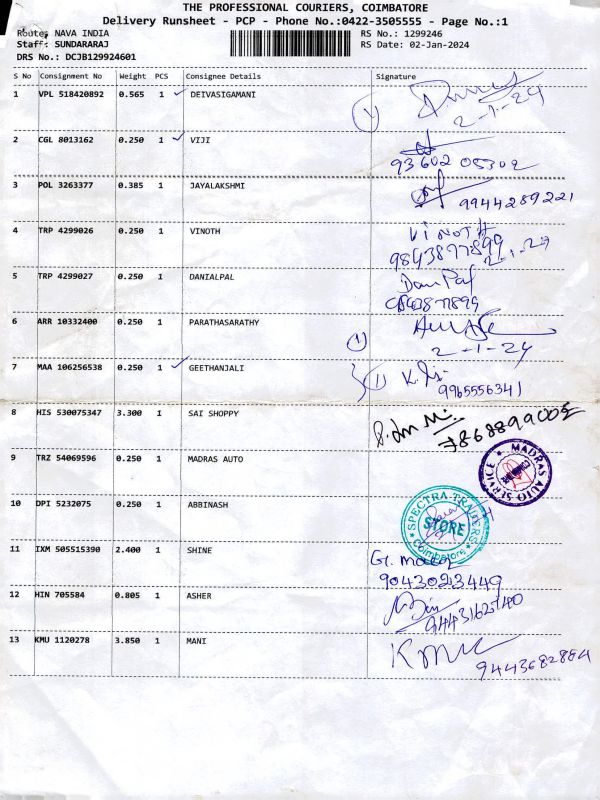 THE PROFESSIONAL COURIERS, COIMBATORE
Delivery Runsheet - PCP - Phone No.:0422-3505555 - Page No.:1
Route: NAVA INDIA RS No.: 1299246
Staff: SUNDARARAJ RS Date: 02-Jan-2024
DRS No.: DCJB129924601
S No Consignment No Weight PCS Consignee Details Signature
1 VPL 518420892 0.565 1 DEIVASIGAMANI
2-1-24
2 CGL 8013162 0.250 1 VIJI
93602 05302
3 POL 3263377 0.385 1 JAYALAKSHMI
9944289221
4 TRP 4299026 0.250 1 VINOTH VINOTH
9843877899
2-1-24
5 TRP 4299027 0.250 1 DANIALPAL
6 ARR 10332400 0.250 1 PARATHASARATHY
2-1-24
7 MAA 106256538 0.250 1 GEETHANJALI
9965556341
8 HIS 530075347 3.300 1 SAI SHOPPY
9 TRZ 54069596 0.250 1 MADRAS AUTO
MADRAS AUTO SERVICE
10 DPI 5232075 0.250 1 ABBINASH
SPECTRA TRADERS
STORE
Coimbatore
11 IXM 505515390 2.400 1 SHINE
9043023449
12 HIN 705584 0.805 1 ASHER
13 KMU 1120278 3.850 1 MANI